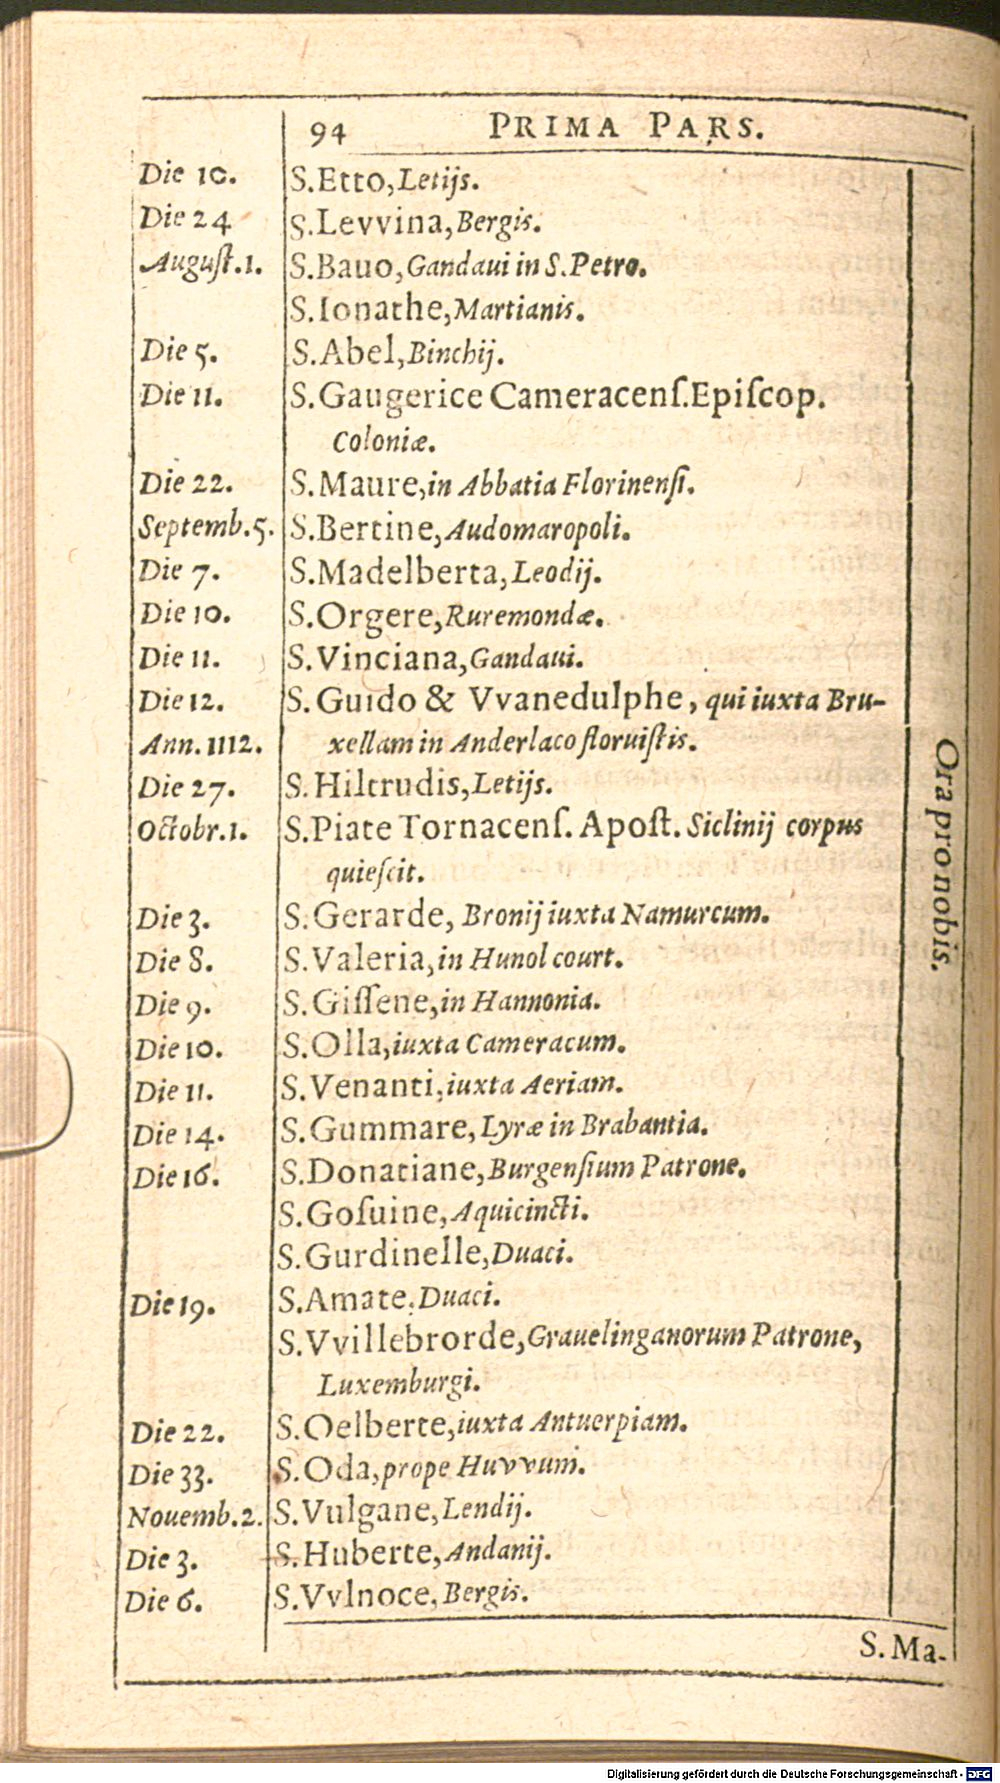 94 PRIMA PARS.
Die 10. S.Etto, Letijs.
Die 24 S.Levvina, Bergis.
August.1. S.Bauo, Gandaui in S.Petro.
S.Ionathe, Martianis.
Die 5. S.Abel, Binchij.
Die 11. S.Gaugerice Cameracenſ.Epiſcop.
Coloniæ.
Die 22. S.Maure, in Abbatia Florinenſi.
Septemb.5. S.Bertine, Audomaropoli.
Die 7. S.Madelberta, Leodij.
Die 10. S.Orgere, Ruremondæ.
Die 11. S.Vinciana, Gandaui.
Die 12. S.Guido & Vvanedulphe, qui iuxta Bru-
Ann. 1112. xellam in Anderlaco floruiſtis.
Die 27. S.Hiltrudis, Letijs.
Octobr.1. S.Piate Tornacenſ. Apoſt. Siclinij corpus
quieſcit.
Die 3. S.Gerarde, Bronij iuxta Namurcum.
Die 8. S.Valeria, in Hunol court.
Die 9. S.Giſſene, in Hannonia.
Die 10. S.Olla, iuxta Cameracum.
Die 11. S.Venanti, iuxta Aeriam.
Die 14. S.Gummare, Lyræ in Brabantia.
Die 16. S.Donatiane, Burgenſium Patrone.
S.Goſuine, Aquicincti.
S.Gurdinelle, Duaci.
Die 19. S.Amate, Duaci.
S.Vvillebrorde, Grauelinganorum Patrone,
Luxemburgi.
Die 22. S.Oelberte, iuxta Antuerpiam.
Die 33. S.Oda, prope Huvvum.
Nouemb.2. S.Vulgane, Lendij.
Die 3. S.Huberte, Andanij.
Die 6. S.Vvlnoce, Bergis.
Ora pro nobis.
S.Ma-
Digitalisierung gefördert durch die Deutsche Forschungsgemeinschaft - DFG